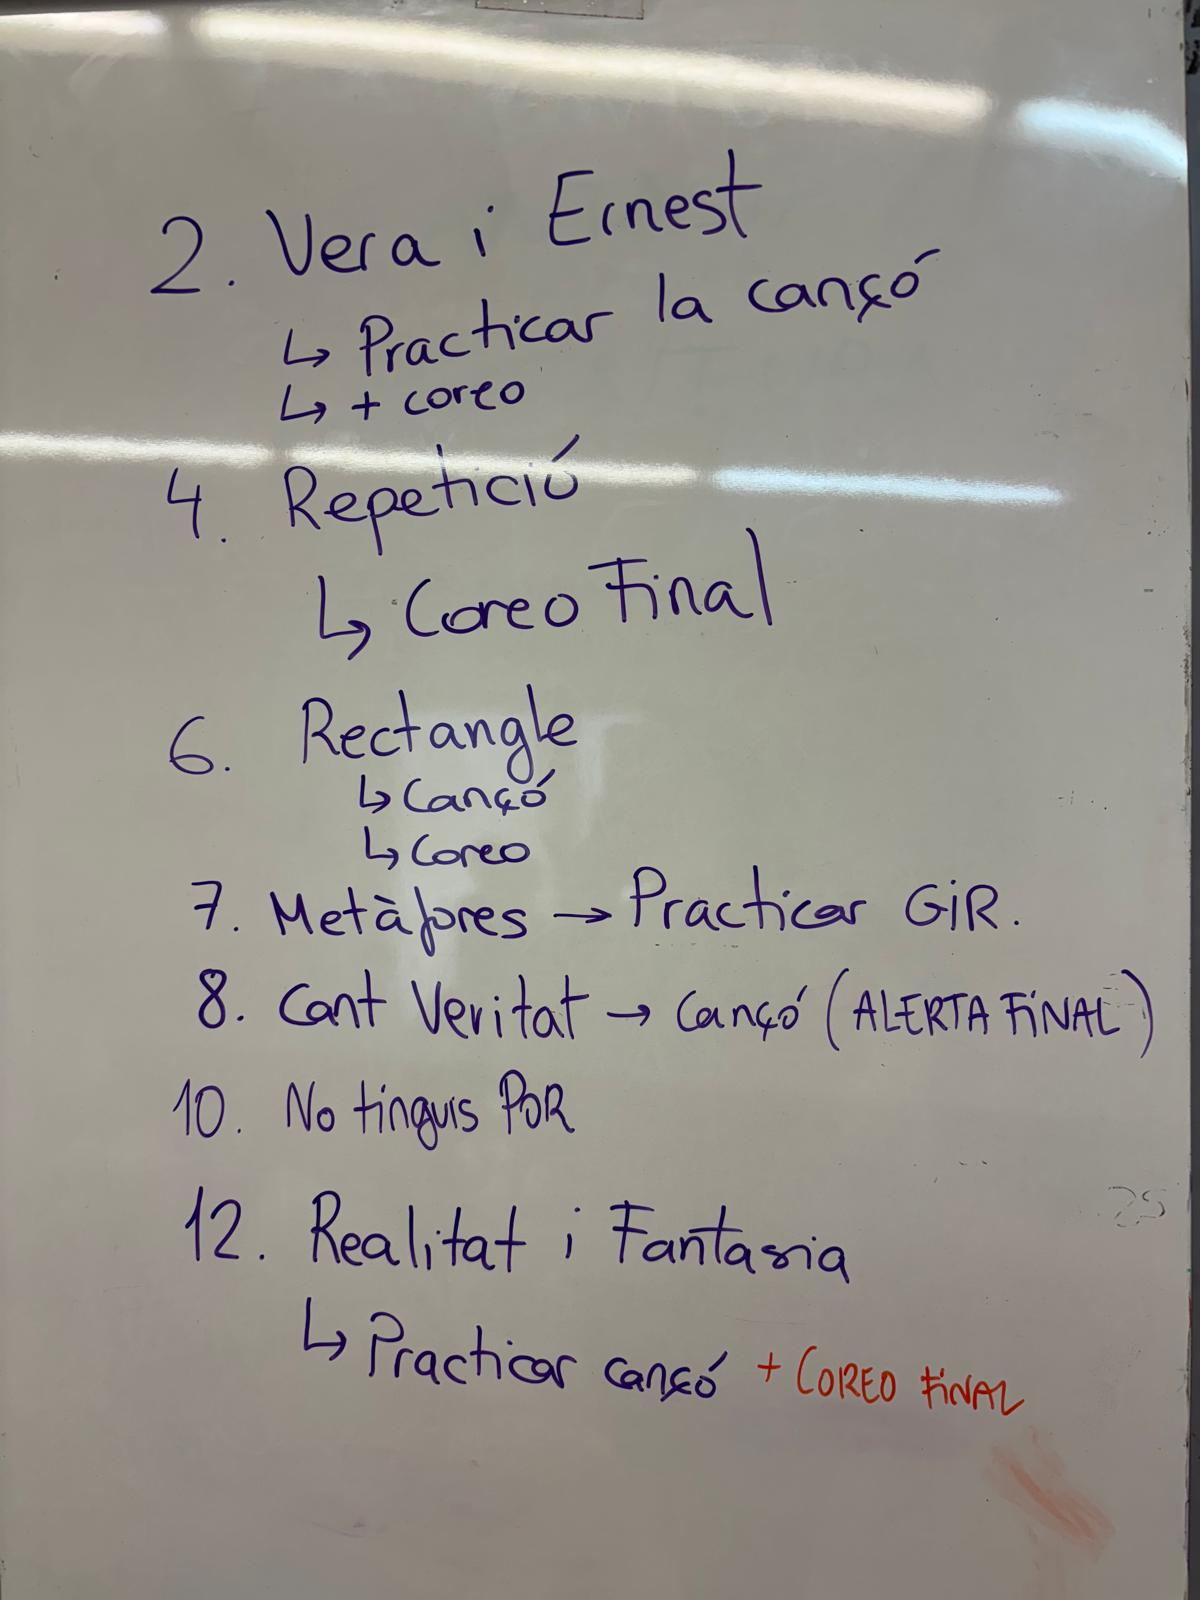 2. Vera i Ernest
↳ Practicar la cançó
↳ + coreo
4. Repetició
↳ Coreo Final
6. Rectangle
↳ Cançó
↳ Coreo
7. Metàfores → Practicar GIR.
8. Cant Veritat → Cançó (ALERTA FINAL)
10. No tinguis POR
12. Realitat i Fantasia
↳ Practicar cançó + COREO FINAL